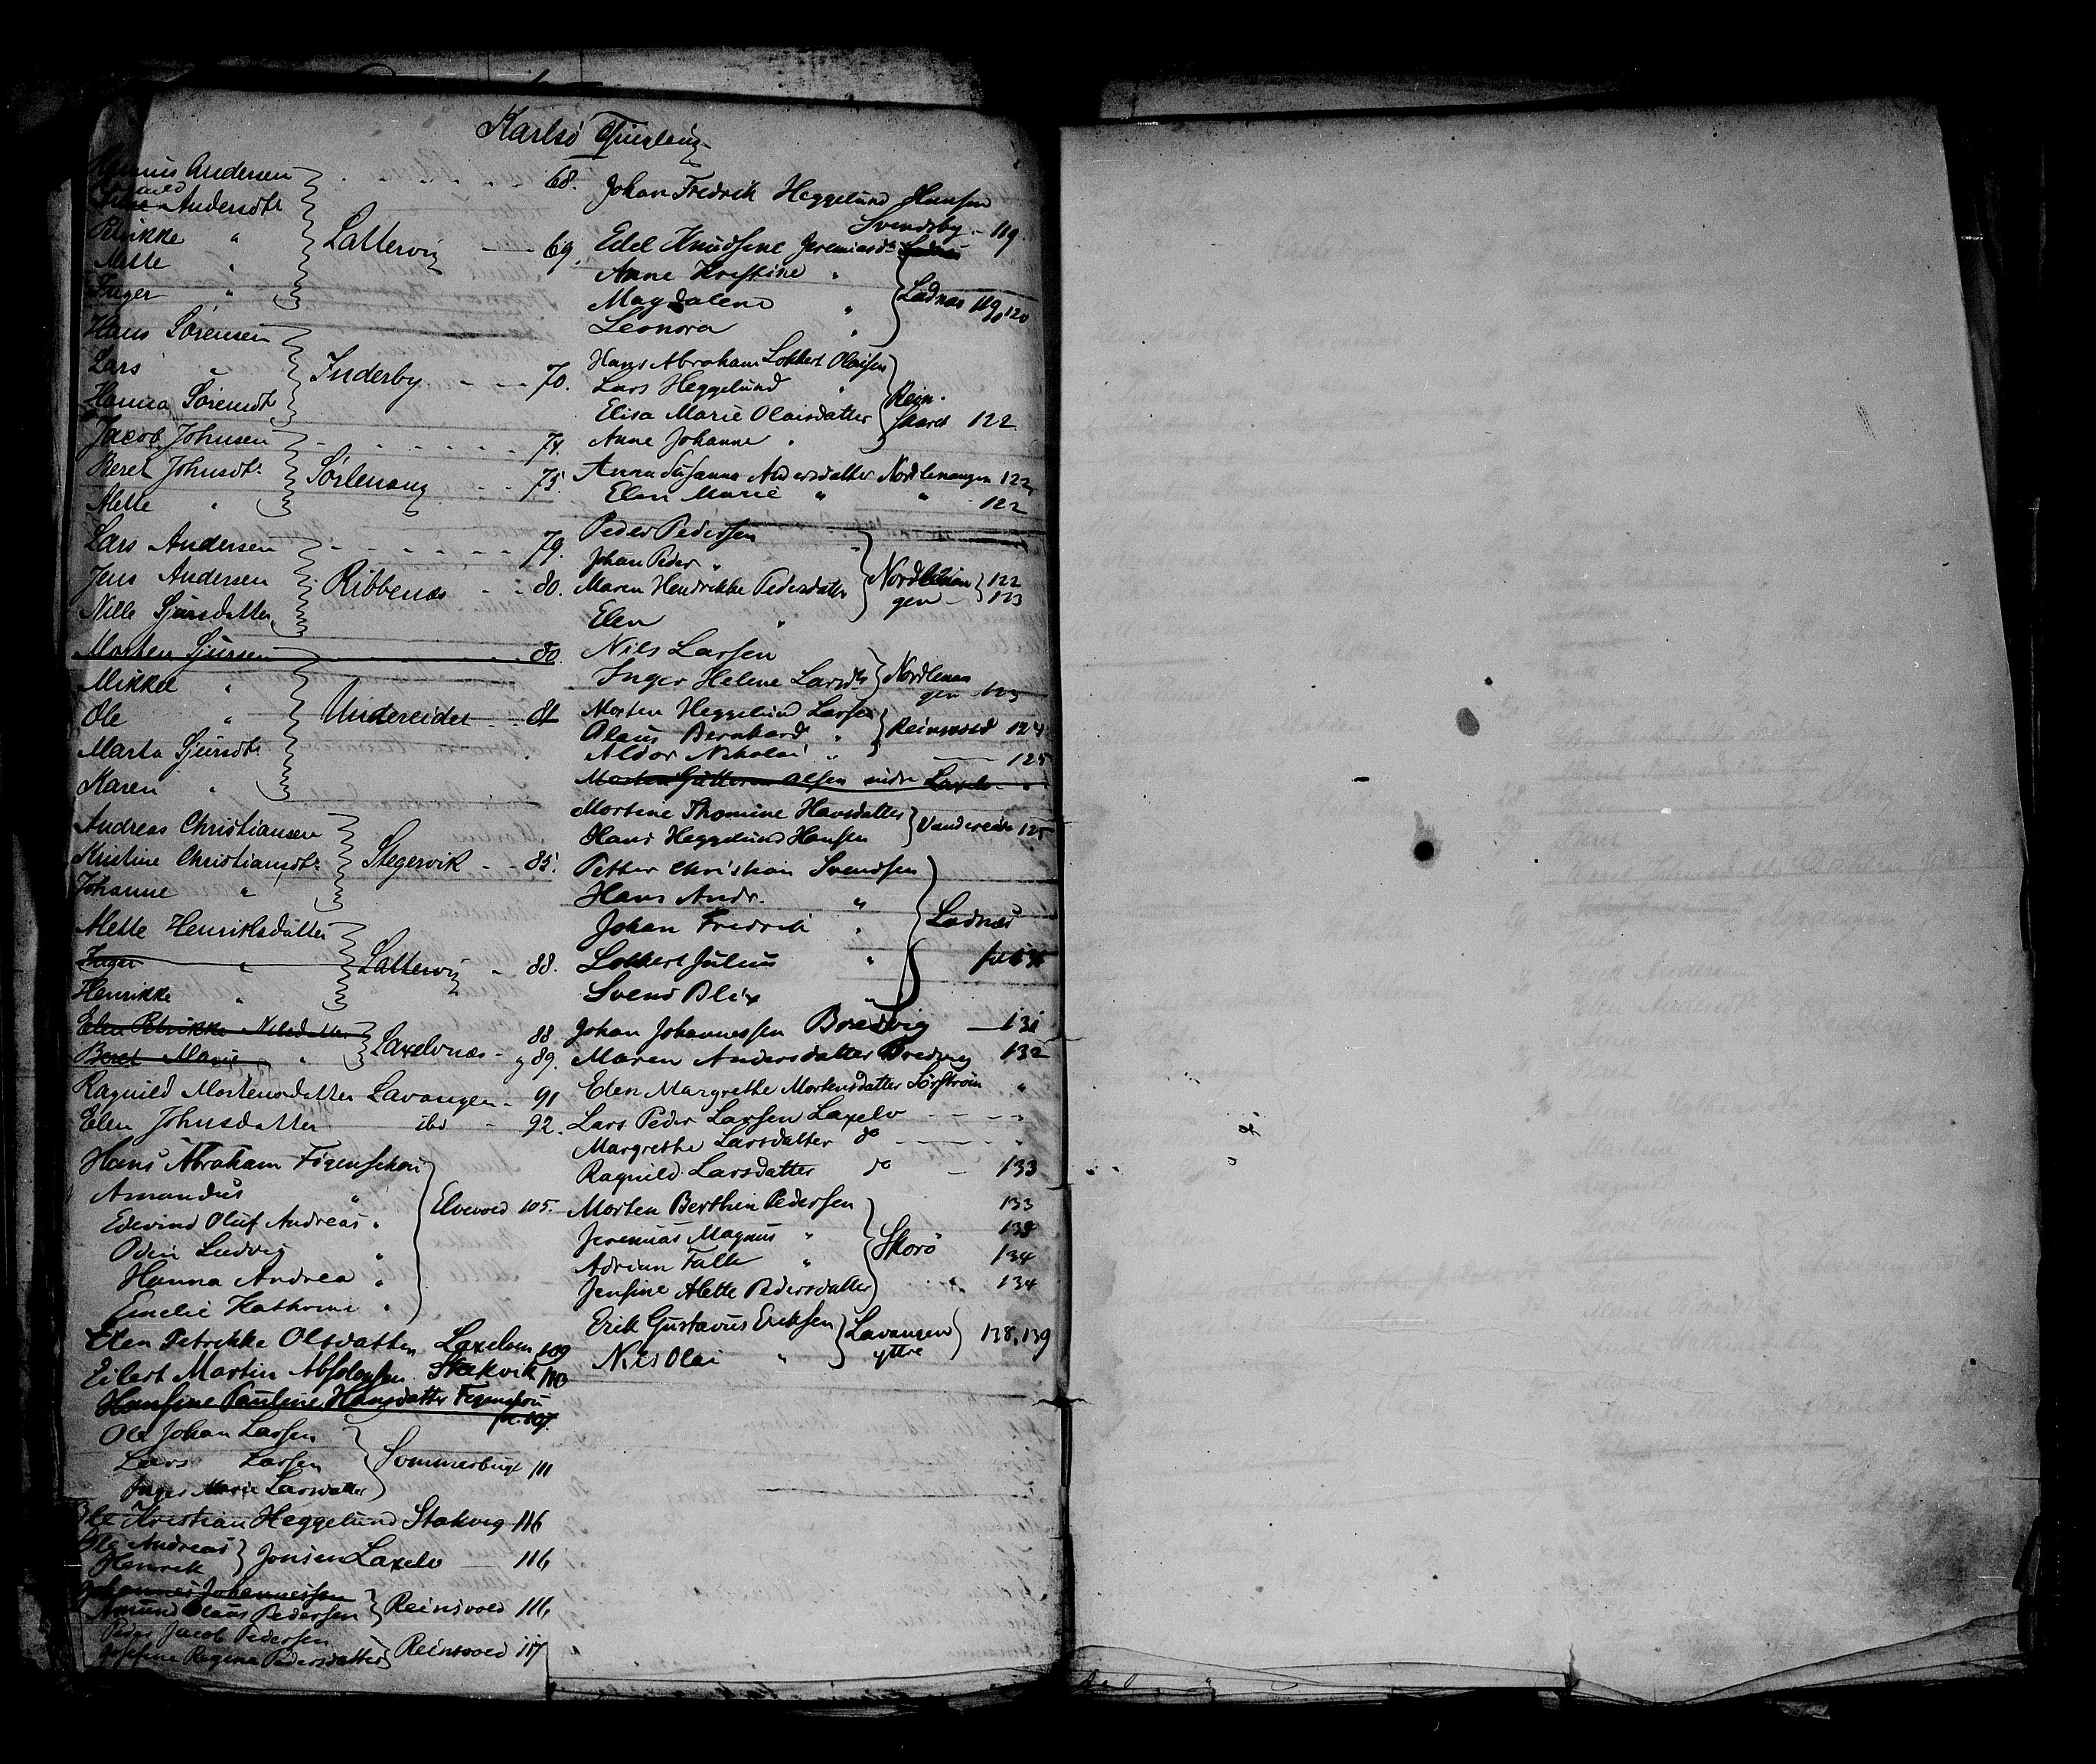 Karlsö Thinglaug
Andersen - - - - 68.
Andersdtr
Petrikke " Lattervig - - 69.
Mette "
Inger "
Hans Sörensen
Lars " Inderby - - 70.
Hanna Sörensdtr
Jacob Johnsen - - - - 74.
Beret Johnsdtr Sörlenang - - 75.
Mette "
Lars Andersen - - - - 79.
Jens Andersen Ribbenæs - - 80.
Nille Sjursdatter
Morten Sjursen - - - - 80.
Mikkel "
Ole " Undereidet - - 81
Marta Sjursdtr
Karen "
Andreas Christiansen
Kristine Christiansdtr Stegervik - - 85.
Johanne "
Mette Henriksdatter
Inger " Lattervig - 88.
Henrikke "
Elen Petrikke Nilsdatter 88
Beret Marie " Laxelvnæs - og 89.
Ragnild Mortensdatter Lavangen - 91
Elen Johnsdatter ibd - 92.
Hans Abraham Figenschou
Amandus "
Edevind Oluf Andreas " Elvevold 105.
Odin Ludvig "
Hanna Andrea "
Emelie Kathrine "
Elen Petrikke Olsdatter Laxelven 109
Eilert Martin Absolonsen Stakvik 110
Hansine Pauline Hansdatter Figenschou
fol. 107.
Ole Johan Larsen
Lars Larsen Sommerbugt 111
Inger Marie Larsdatter
Ole Kristian Heggelund Stakvig 116
Ole Andreas
Henrik Jonsen Laxelv - 116
Johannes Johannessen
Amund Claus Pedersen Reinsvold 116
Peder Jacob Pedersen
Josefine Regine Pedersdatter Reinsvold 117
Johan Fredrik Heggelund Hansen
Svendsby - 119.
Edel Knudsine Jeremiasdtr Lodnæs
Anne Kristine "
Magdalena " Lodnæs 119, 120
Leonora "
Hans Abraham Lokkert Olaisen
Lars Heggelund " Rein-
Elisa Marie Olaisdatter skaret 122
Anne Johanne "
Anna Susanna Andersdatter Nordlenangen 122
Elen Marie " " - 122
Peder Pedersen
Johan Peder "
Maren Hendrikke Pedersdatter Nordlenan 122
gen - 123
Elen "
Nils Larsen
Inger Helene Larsdtr Nordlenan
gen 123
Morten Heggelund Larsen
Olaus Bernhard " Reinsvold 124
Aldor Nikolai " - 125
Morten Guttorm Olsen indre Laxelv - "
Martine Thomine Hansdatter
Hans Heggelund Hansen Undereide 125
Petter Christian Svendsen
Hans Andr. "
Johan Fredrik " Lodnæs
Lokkert Julius "
Svend Blix "
Johan Johannessen Bredvig - 131
Maren Andersdatter Bredvig 132
Elen Margrethe Mortensdatter Sörström "
Lars Peder Larsen Laxelv - - - "
Margrethe Larsdatter do - - "
Ragnild Larsdatter do - 133
Morten Berthin Pedersen 133
Jeremias Magnus " 133
Adrian Falk " Skorö 134
Jensine Alette Pedersdatter " 134
Erik Gustavus Eriksen Lavangen 138, 139
Nils Olai " yttre